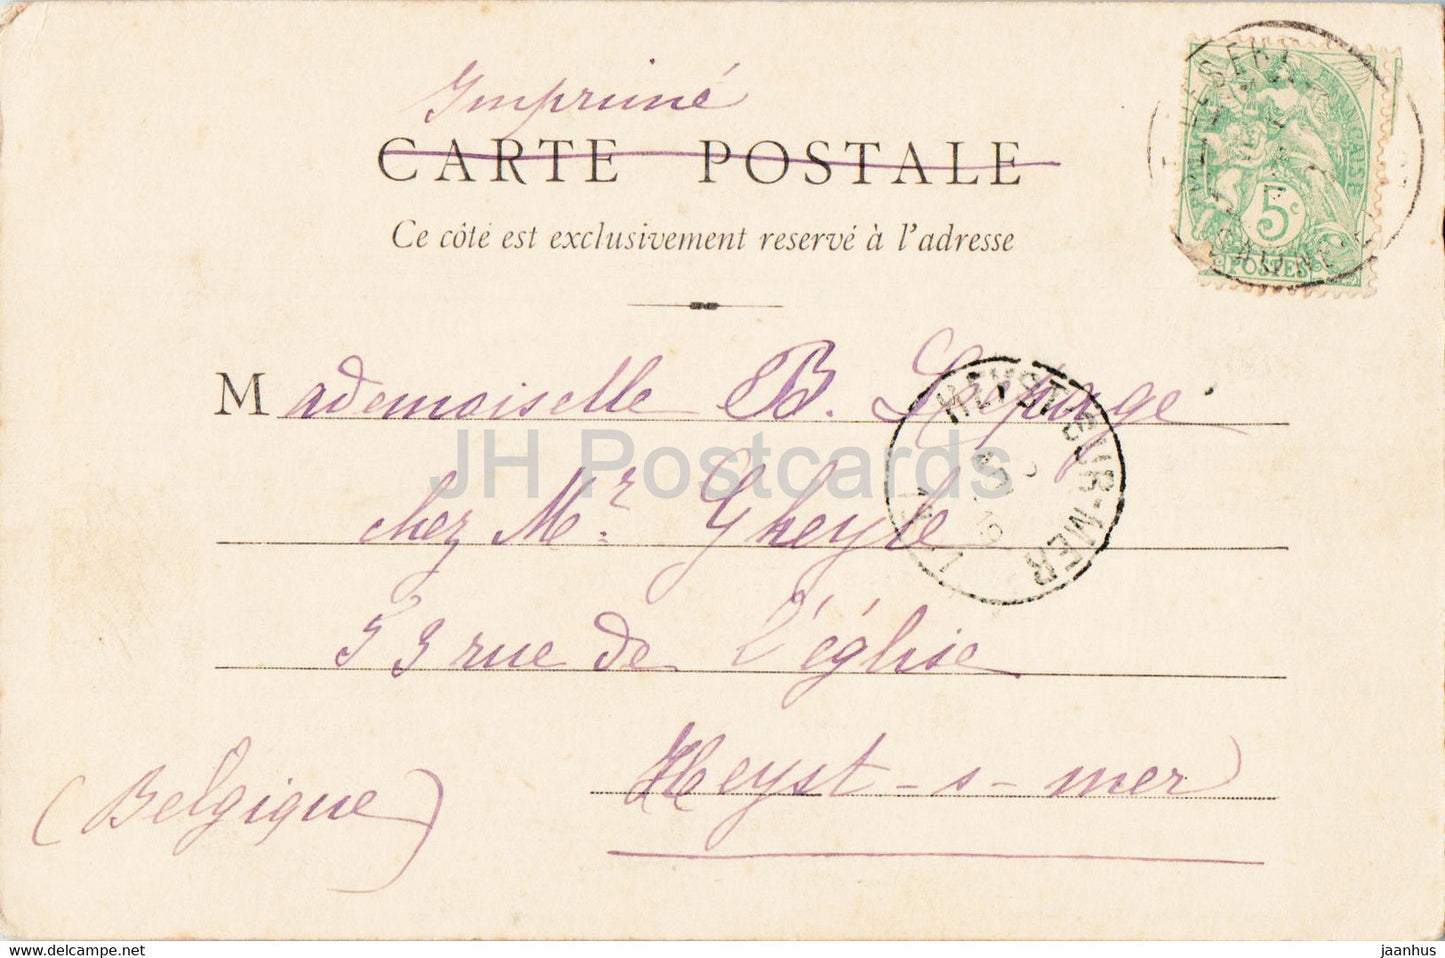 Imprimé
CARTE POSTALE
Ce côté est exclusivement reservé à l'adresse
5c
POSTES
Mademoiselle B. Lepage
HEYST-SUR-MER
JH Postcards
chez Mr. Gheyle
53 rue de l'église
Heyst-s-mer
(Belgique)
www.delcampe.net
jaanhus